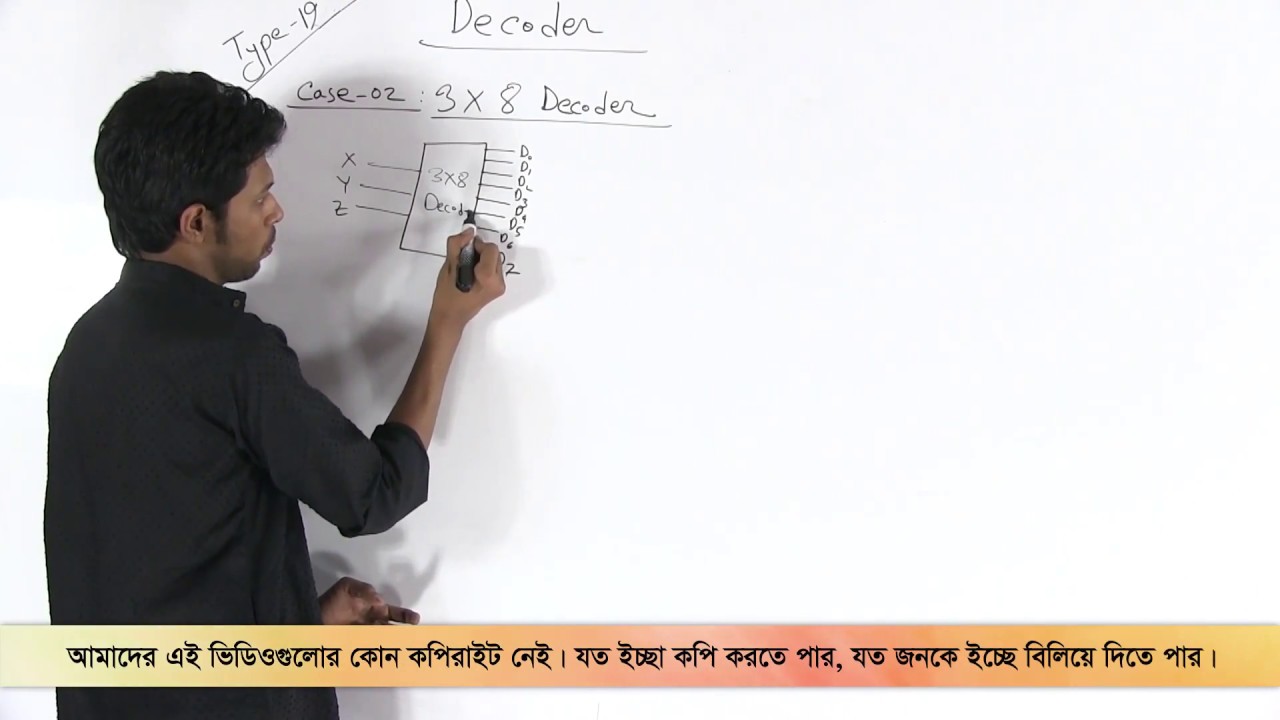 Type-19
Decoder
Case-02 : 3 X 8 Decoder
X
Y
Z
3X8
Decod
D0
D1
D2
D3
D4
D5
D6
D7
আমাদের এই ভিডিওগুলোর কোন কপিরাইট নেই। যত ইচ্ছা কপি করতে পার, যত জনকে ইচ্ছে বিলিয়ে দিতে পার।